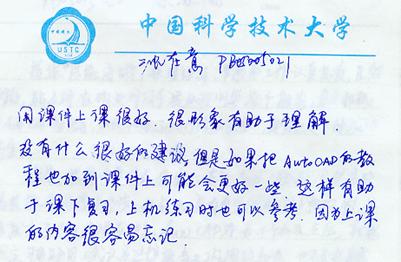 USTC
中国科学技术大学
在意 PB
用课件上课很好. 很形象有助于理解.
没有什么很好的建议, 但是如果把AutoCAD的教
程也加到课件上可能会更好一些. 这样有助
于课下复习, 上机练习时也可以参考. 因为上课
的内容很容易忘记.